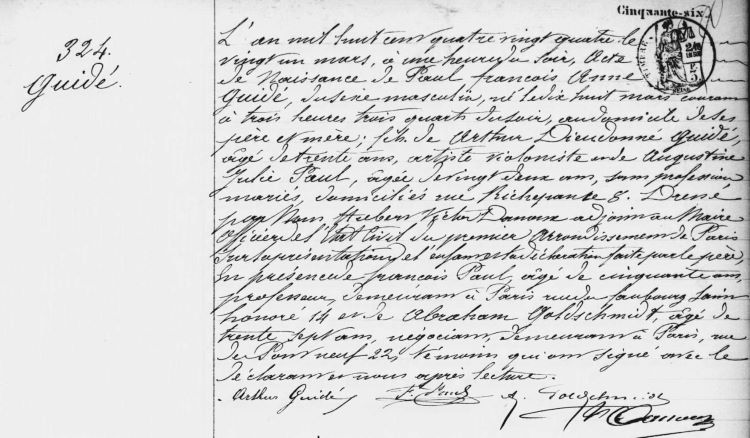 Cinquante-six
324.
Guidé.
L'an mil huit cent quatre vingt quatre le
vingt un mars, à une heure du soir, Acte
de Naissance de Paul François Anne
Guidé, du sexe masculin, né le dix huit mars courant
à trois heures trois quarts du soir, au domicile de ses
père et mère; fils de Arthur Dieudonné Guidé,
âgé de trente ans, artiste violoniste et de Augustine
Julie Paul, âgée de vingt deux ans, sans profession
mariés, domiciliés rue Richepance 8. Dressé
par Nous Hubert Victor adjoint au Maire
Officier de l'État Civil du premier arrondissement de Paris
sur la présentation de l'enfant et la déclaration faite par le père,
En présence de François Paul, âgé de cinquante ans,
professeur, demeurant à Paris rue du faubourg Saint
honoré 14 et de Abraham Goldschmidt, âgé de
trente sept ans, négociant, demeurant à Paris, rue
du Pont neuf 22, témoins qui ont signé avec le
déclarant et nous après lecture.
Arthur Guidé F. Paul A. Goldschmidt